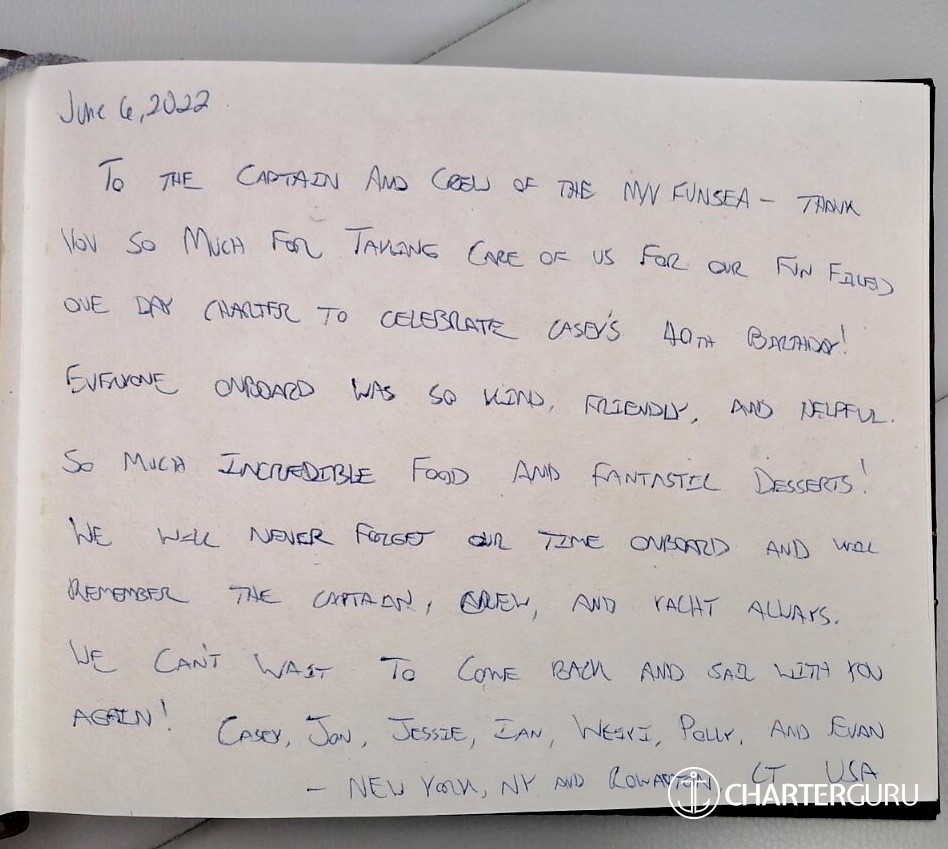 June 6, 2022
To THE CAPTAIN AND CREW OF THE M/V FUNSEA – THANK
YOU SO MUCH FOR TAKING CARE OF US FOR OUR FUN FILLED
ONE DAY CHARTER TO CELEBRATE CASEY'S 40TH BIRTHDAY!
EVERYONE ONBOARD WAS SO KIND, FRIENDLY, AND HELPFUL.
SO MUCH INCREDIBLE FOOD AND FANTASTIC DESSERTS!
WE WILL NEVER FORGET OUR TIME ONBOARD AND WILL
REMEMBER THE CAPTAIN, CREW, AND YACHT ALWAYS.
WE CAN'T WAIT TO COME BACK AND SAIL WITH YOU
AGAIN! CASEY, JON, JESSIE, IAN, POLLY, AND EVAN
– NEW YORK, NY AND ROWAYTON CT USA
CHARTERGURU